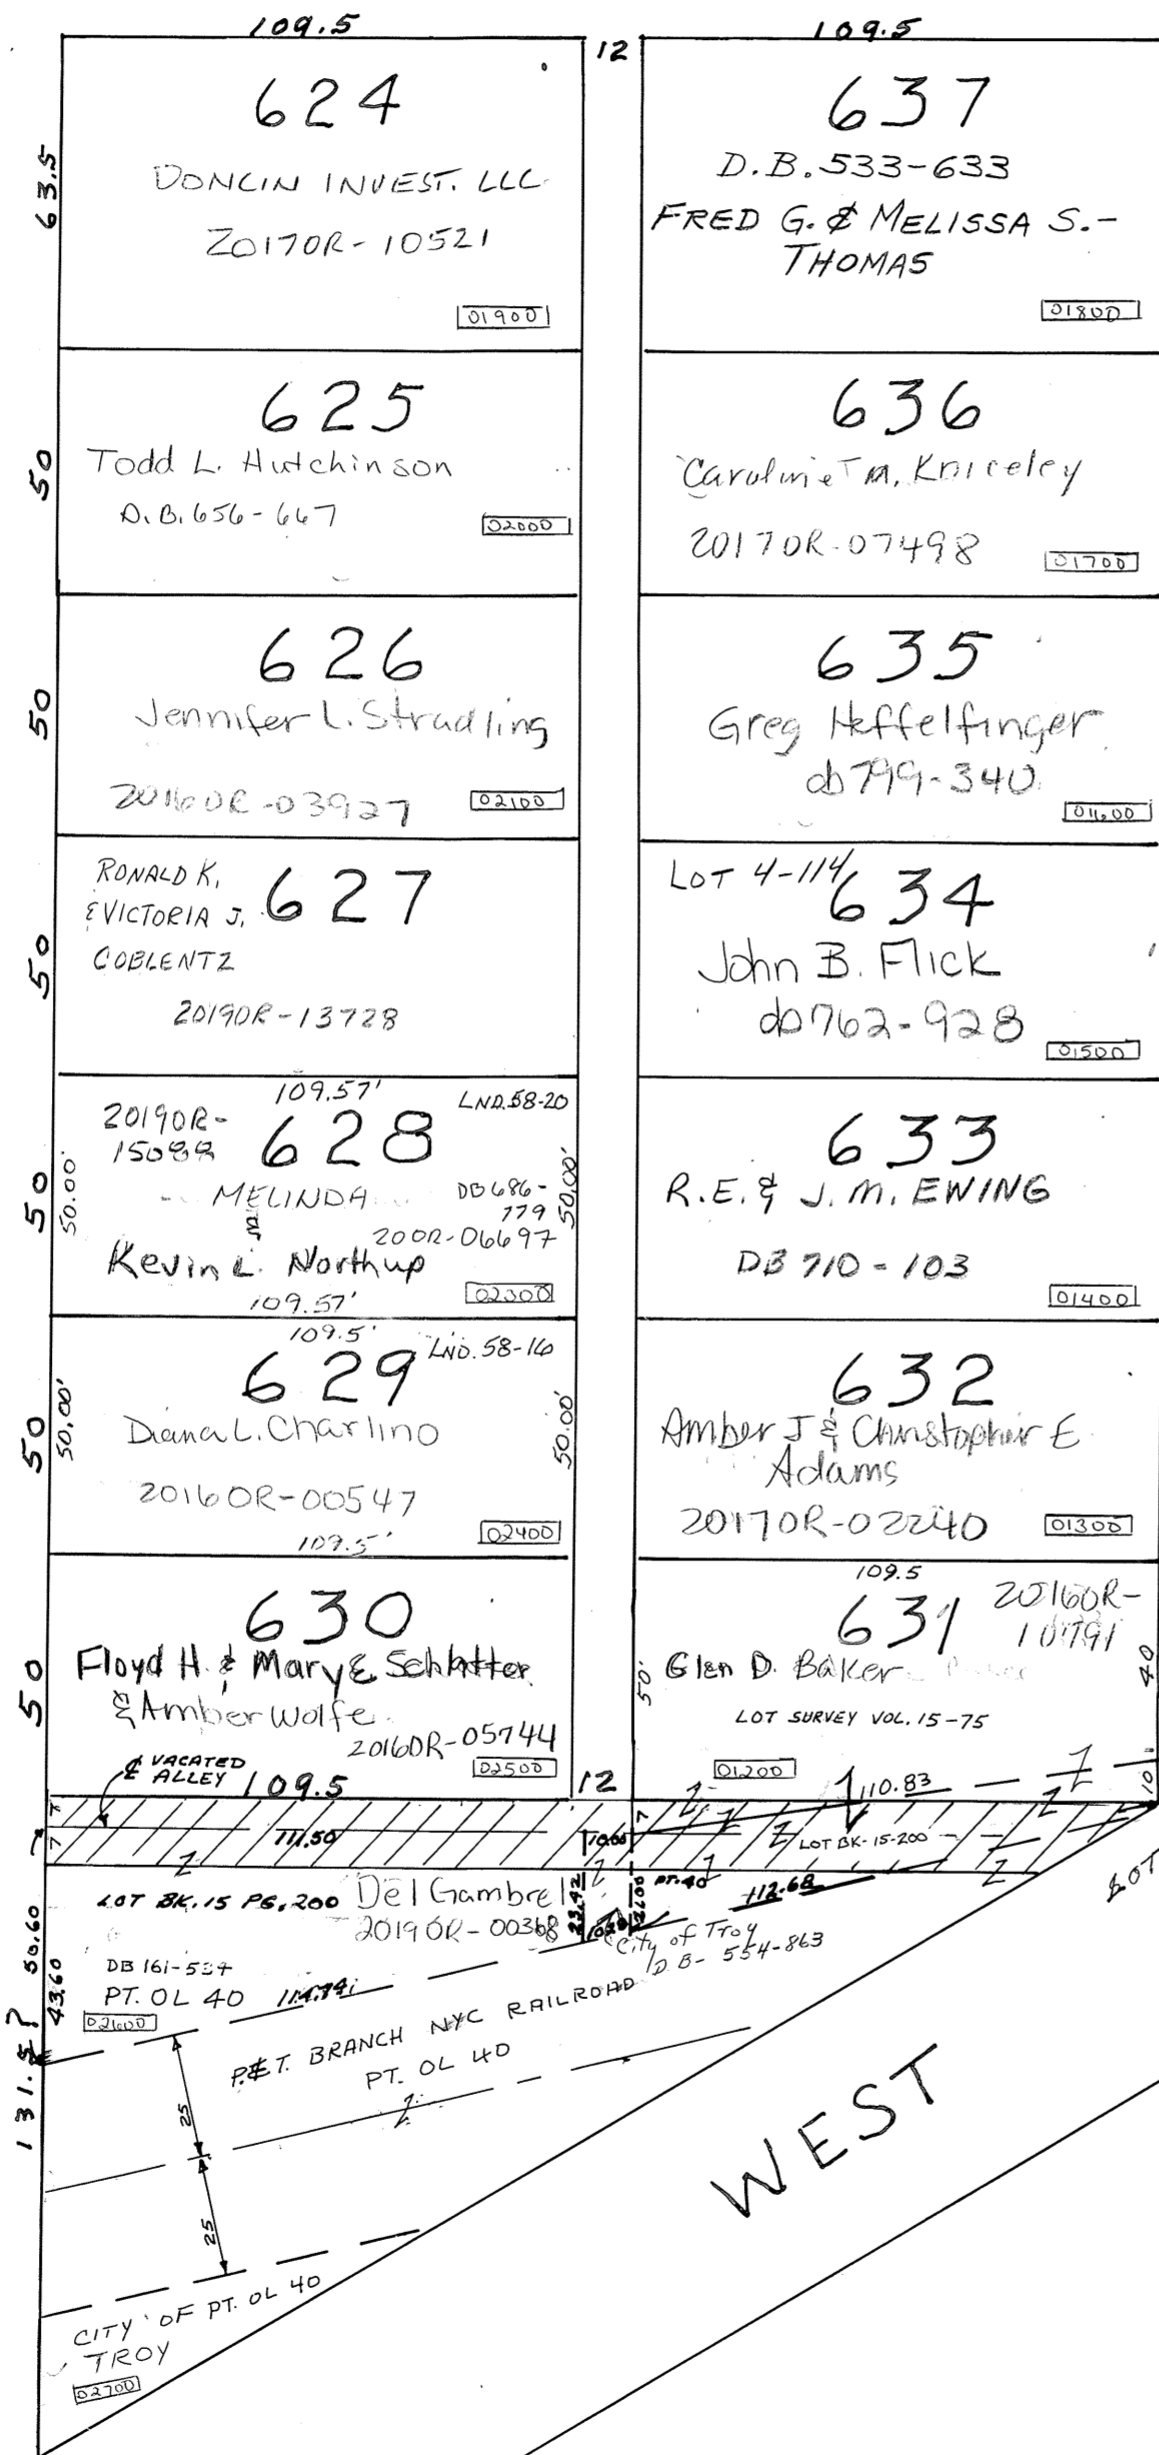 109.5
12
109.5
63.5
624
DONCIN INVEST. LLC
2017OR-10521
01900
637
D.B.533-633
FRED G. & MELISSA S.-
THOMAS
01800
50
625
Todd L. Hutchinson
D.B.656-667
02000
636
Caroline M. Kniceley
2017OR-07498
01700
50
626
Jennifer L. Stradling
2016OR-03927
02100
635
Greg Heffelfinger
db799-340
01600
50
RONALD K.
& VICTORIA J.
COBLENTZ
627
2019OR-13728
LOT 4-114
634
John B. Flick
db762-928
01500
50
50.00'
109.57'
LND.58-20
2019OR-
628
MELINDA
DB686-
779
50.00'
200R-06697
Kevin L. Northup
02300
109.57'
633
R.E. & J.M. EWING
DB 710-103
01400
50
50.00'
109.5'
LND.58-16
629
Diana L. Charlino
50.00'
2016OR-00547
02400
109.5'
632
Amber J & Christopher E
Adams
2017OR-02240
01300
50
630
Floyd H. & Mary E. Schlatter
& Amber Wolfe
2016OR-05744
02500
109.5
631
2016OR-
50'
Glen D. Baker
40
LOT SURVEY VOL.15-75
01200
10
℄ VACATED
ALLEY
109.5
12
110.83
7
7
7
111.50
7
LOT BK-15-200
LOT BK.15 PG.200
Del Gambrel
2019OR-00368
23.42
21.00
PT.40
112.68
LOT
City of Troy
D.B- 554-863
50.60
43.60
131.5?
DB 161-534
PT. OL 40
114.74
02600
P.&T. BRANCH NYC RAILROAD
PT. OL 40
25
25
WEST
CITY OF PT. OL 40
TROY
02700